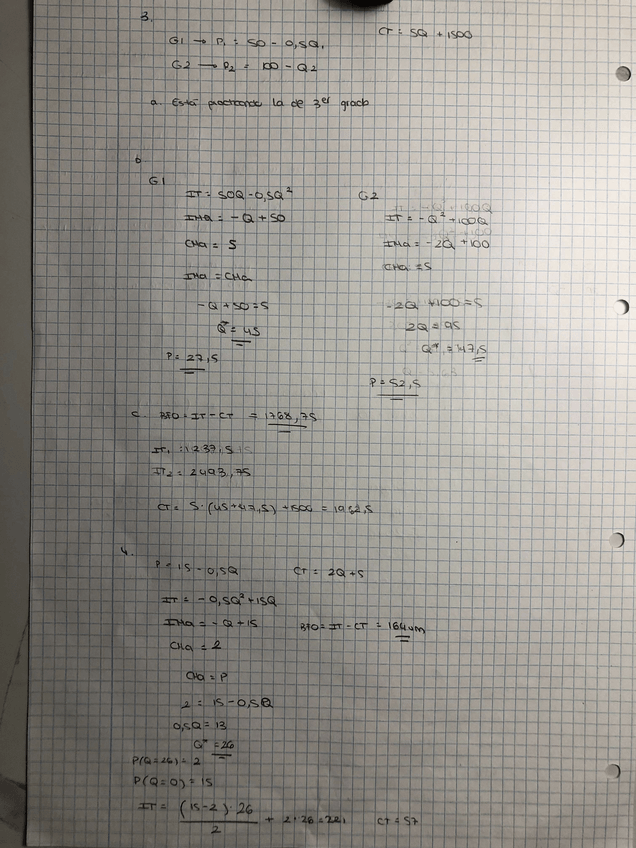 3.
CT = 5Q + 1500
G1 → P₁ = 50 - 0,5Q₁
G2 → P₂ = 100 - Q2
a. Está practicando la de 3er grado
b
G1
IT = 50Q - 0,5Q²
IMa = -Q + 50
CMa = 5
IMa = CMa
-Q + 50 = 5
Q* = 45
P = 27,5
G2
IT = -Q² + 100Q
IMa = -2Q + 100
CMa = 5
-2Q + 100 = 5
2Q = 95
Q* = 47,5
P = 52,5
c. BFO = IT - CT = 1768,75
IT₁ = 1237,5
IT₂ = 2493,75
CT = 5·(45+47,5) + 1500 = 1962,5
4.
P = 15 - 0,5Q CT = 2Q + 5
IT = -0,5Q² + 15Q
IMa = -Q + 15 BFO = IT - CT = 164um
CMa = 2
CMa = P
2 = 15 - 0,5Q
0,5Q = 13
Q* = 26
P(Q=26) = 2
P(Q=0) = 15
IT = (15-2)·26 / 2 + 2·26 = 221 CT = 57